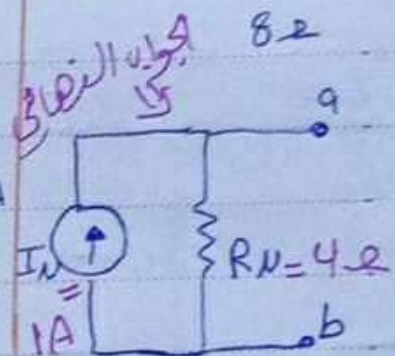 8Ω
الجواب النهائي
a
I_N
=
1A
R_N=4Ω
b